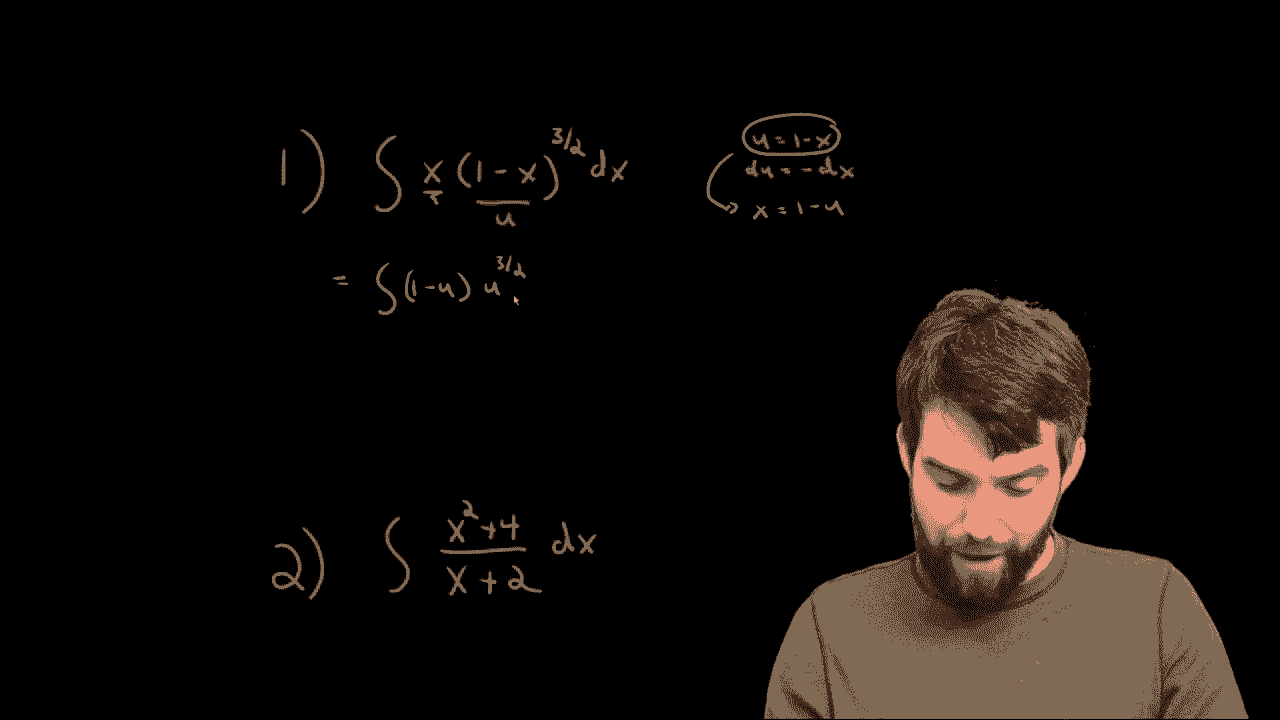 1) ∫ x (1 - x)^{3/2} dx
u
u = 1 - x
du = - dx
x = 1 - u
= ∫ (1 - u) u^{3/2}
2) ∫ \frac{x^2 + 4}{x + 2} dx